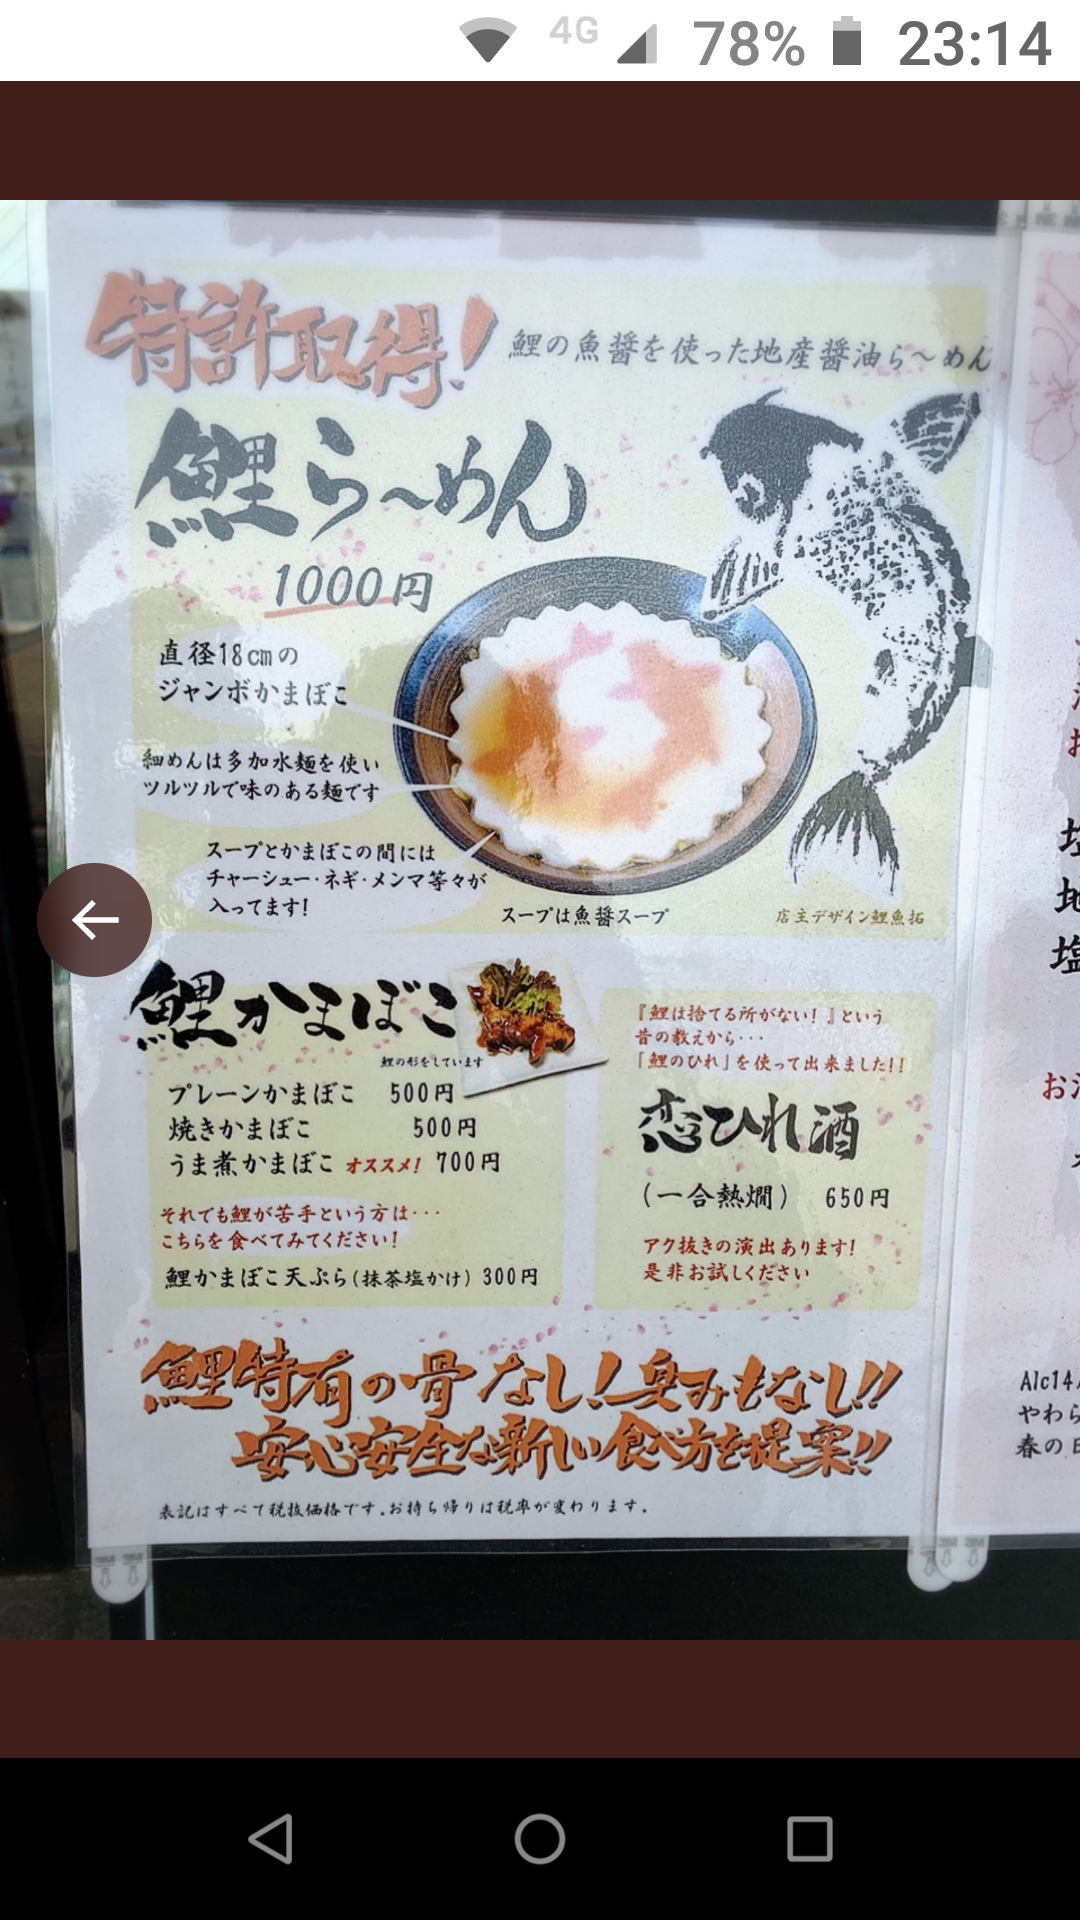 4G 78% 23:14
特許取得!
鯉の魚醤を使った地産醤油ら〜めん
鯉ら〜めん
1000円
直径18cmの
ジャンボかまぼこ
細めんは多加水麺を使い
ツルツルで味のある麺です
スープとかまぼこの間には
チャーシュー・ネギ・メンマ等々が
入ってます!
スープは魚醤スープ
店主デザイン鯉魚拓
鯉かまぼこ
鯉の形をしています
プレーンかまぼこ 500円
焼きかまぼこ 500円
うま煮かまぼこ オススメ! 700円
それでも鯉が苦手という方は・・・
こちらを食べてみてください!
鯉かまぼこ天ぷら(抹茶塩かけ) 300円
『鯉は捨てる所がない!』という
昔の教えから・・・
「鯉のひれ」を使って出来ました!!
恋ひれ酒
(一合熱燗) 650円
アク抜きの演出あります!
是非お試しください
鯉特有の骨なし!臭みもなし!!
安心安全な新しい食べ方を提案!!
表記はすべて税抜価格です。お持ち帰りは税率が変わります。
お
地
塩
お
Alc14
やわら
春の日